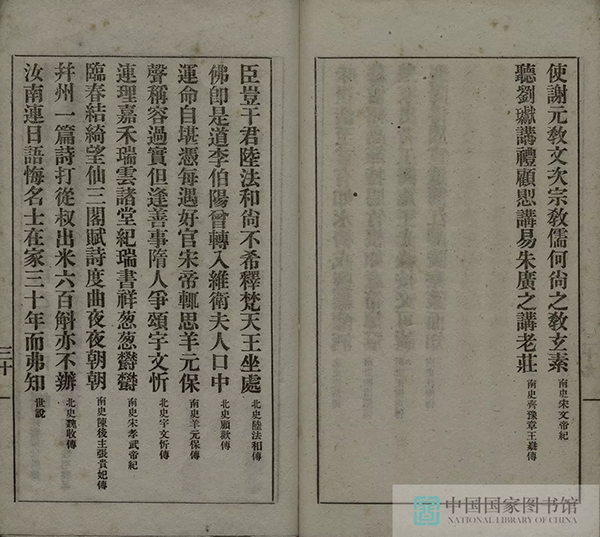 使謝元教文次宗教儒何尙之教玄素 南史宋文帝紀
聽劉瓛講禮顧懇講易朱廣之講老莊 南史齊豫章王嶷傳
臣豈干君陸法和尙不希釋梵天王坐處 北史陸法和傳
佛卽是道李伯陽曾轉入維衛夫人口中 北史顧歡傳
運命自堪憑每遇好官宋帝輒思羊元保 南史羊元保傳
聲稱容過實但逢善事隋人爭頌宇文忻 北史宇文忻傳
連理嘉禾瑞雲諸堂紀瑞書祥葱葱鬱鬱 南史宋孝武帝紀
臨春結綺望仙三閣賦詩度曲夜夜朝朝 南史陳後主張貴妃傳
幷州一篇詩打從叔出米六百斛亦不辦 北史魏收傳
汝南連日語悔名士在家三十年而弗知 世說
三十
中国国家图书馆
NATIONAL LIBRARY OF CHINA